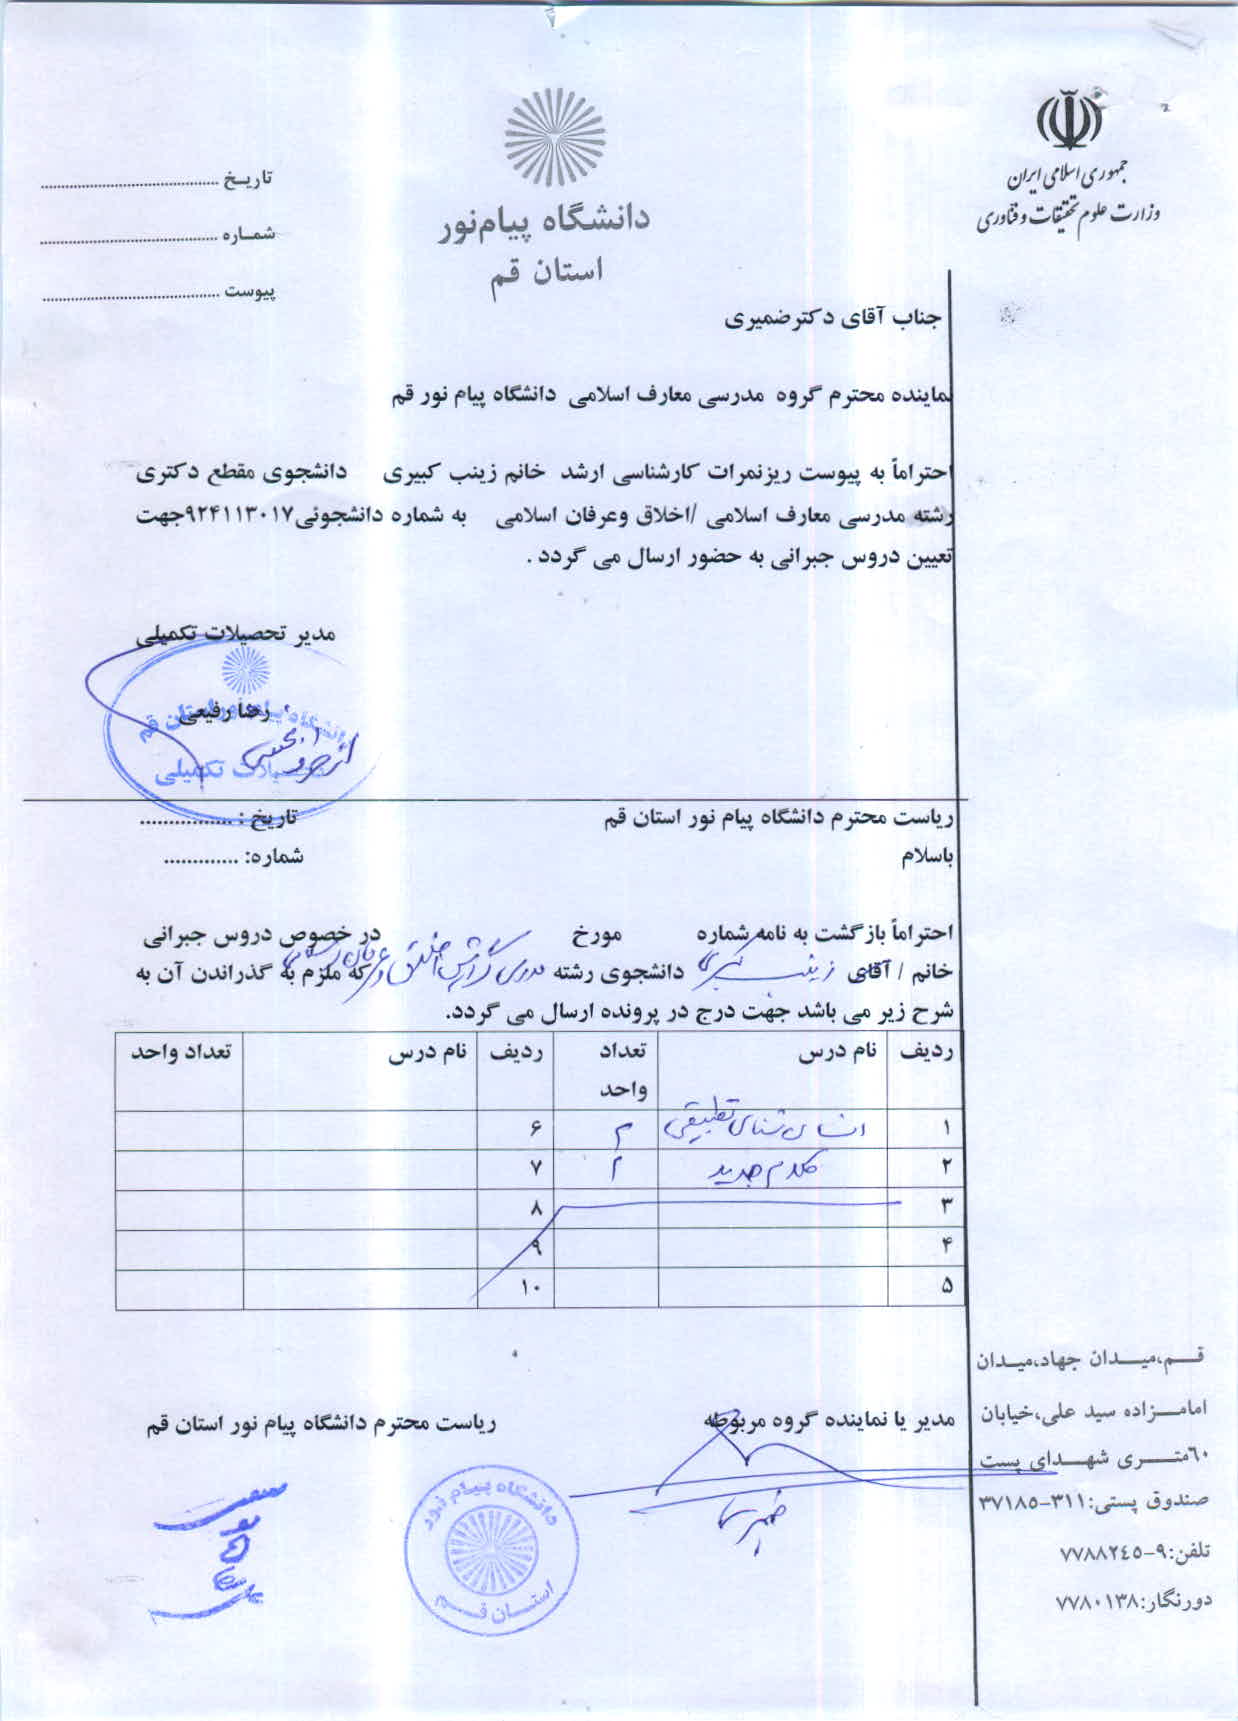 جمهوری اسلامی ایران
وزارت علوم تحقیقات و فناوری
دانشگاه پیام‌نور
استان قم
تاریخ ........................................
شماره ........................................
پیوست ........................................
جناب آقای دکترضمیری
نماینده محترم گروه مدرسی معارف اسلامی دانشگاه پیام نور قم
احتراماً به پیوست ریزنمرات کارشناسی ارشد خانم زینب کبیری دانشجوی مقطع دکتری
رشته مدرسی معارف اسلامی /اخلاق وعرفان اسلامی به شماره دانشجوئی۹۲۴۱۱۳۰۱۷جهت
تعیین دروس جبرانی به حضور ارسال می گردد .
مدیر تحصیلات تکمیلی
رضا رفیعی
دانشگاه پیام نور استان قم
تحصیلات تکمیلی
ریاست محترم دانشگاه پیام نور استان قم
تاریخ : ................
باسلام
شماره: .............
احتراماً بازگشت به نامه شماره مورخ در خصوص دروس جبرانی
خانم / آقای زینب کبیری دانشجوی رشته مدرسی گرایش اخلاق و عرفان اسلامی که ملزم به گذراندن آن به
شرح زیر می باشد جهت درج در پرونده ارسال می گردد.
ردیف نام درس تعداد واحد ردیف نام درس تعداد واحد
۱ انسان شناسی تطبیقی ۲ ۶
۲ کلام جدید ۲ ۷
۳ ۸
۴ ۹
۵ ۱۰
مدیر یا نماینده گروه مربوطه
ریاست محترم دانشگاه پیام نور استان قم
ضمیری
دانشگاه پیام نور
استان قم
قم،میدان جهاد،میدان
امامزاده سید علی،خیابان
۶۰متری شهدای پست
صندوق پستی:۳۱۱-۳۷۱۸۵
تلفن:۹-۷۷۸۸۲٤٥
دورنگار:۷۷۸۰۱۳۸